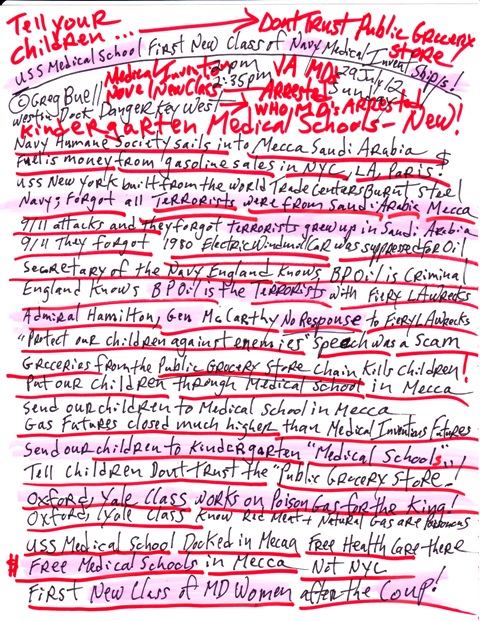 Tell your
Children ... → Dont Trust Public Grocery
Store!
USS Medical School First New Class of Navy Medical Invent Ship's!
Medical Invent 2pm VA MDs 29 July 12
© Greg Buell Novel New Class 2:35pm Arrested Sunday
Westin Dock Danger Key West → WHO MD's Arrested
Kindergarten Medical Schools - New!
Navy Humane Society sails into Mecca Saudi Arabia $
Fuel is money from gasoline sales in NYC, LA, Paris!
USS New York built from the World Trade Centers Burnt steel
Navys Forgot all Terrorists were from Saudi Arabia Mecca
9/11 attacks and they forgot terrorists grew up in Saudi Arabia
9/11 They forgot 1980 ElectricWindmillCar was suppressed for Oil
Secretary of the Navy England Knows BP Oil is Criminal
England Knows BP Oil is the Terrorists with Fiery LAwrecks
Admiral Hamilton, Gen McCarthy No Response to Fiery LAwrecks
"Protect our children against enemies" Speech was a Scam
Grceries from the Public Grocery Store Chain Kills Children!
Put our children through Medical School in Mecca
Send our children to Medical School in Mecca
Gas Futures closed much higher than Medical Inventions Futures
Send our children to Kindergarten "Medical Schools"!
Tell children Dont trust the "Public Grocery Store"
Oxford, Yale Class works on Poison Gas for the King!
Oxford, Yale Class Know Red Meat + Natural Gas are Poisonous
USS Medical School Docked in Mecca Free Health Care there
# Free Medical Schools in Mecca Not NYC
First New Class of MD Women after the Coup!